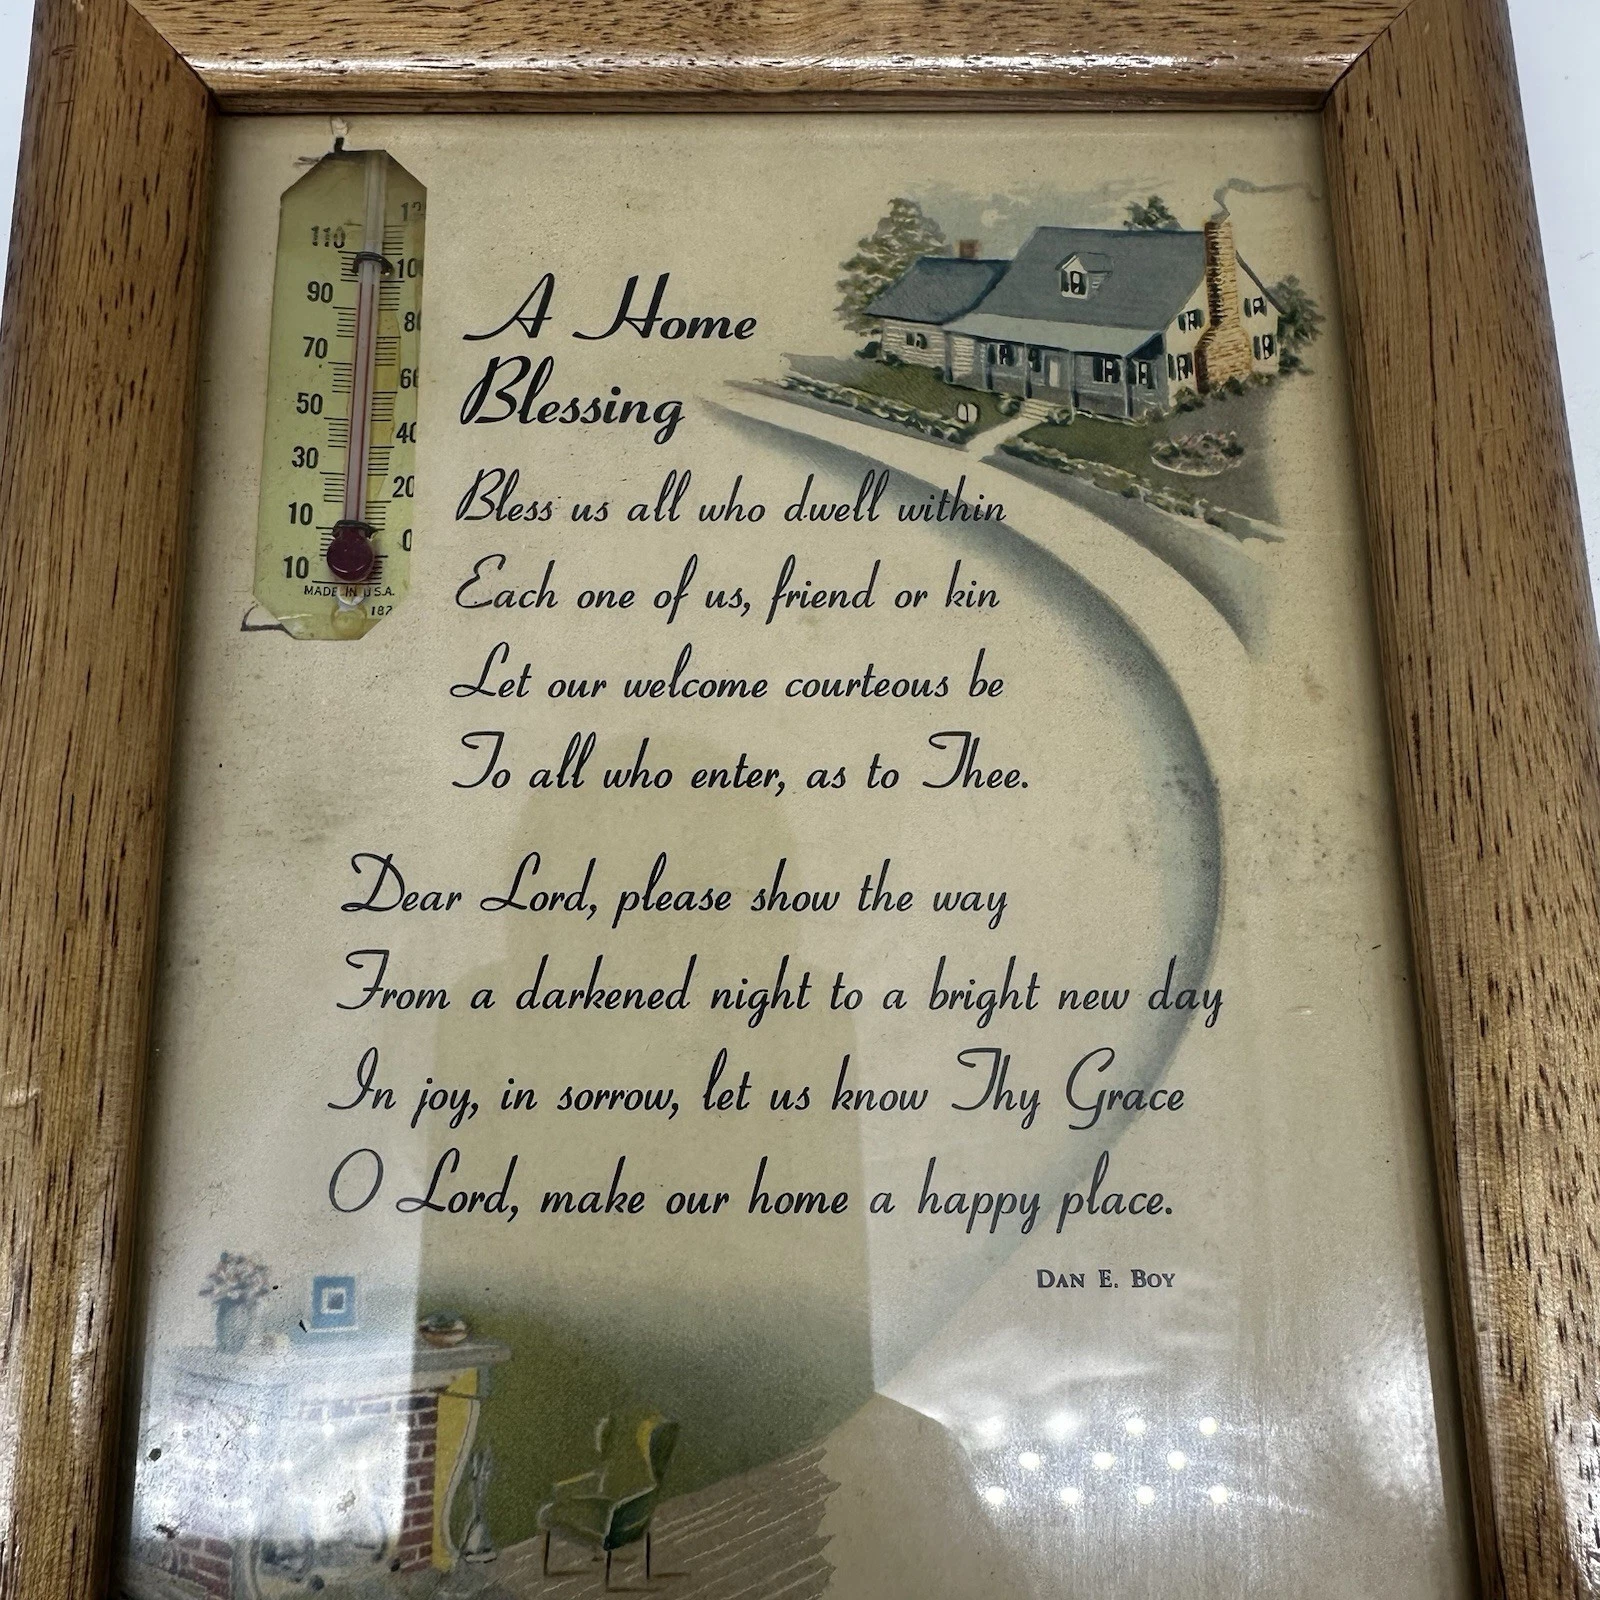 A Home
Blessing
Bless us all who dwell within
Each one of us, friend or kin
Let our welcome courteous be
To all who enter, as to Thee.
Dear Lord, please show the way
From a darkened night to a bright new day
In joy, in sorrow, let us know Thy Grace
O Lord, make our home a happy place.
DAN E. BOY
110
90
70
50
30
10
10
80
40
20
0
MADE IN U.S.A.
187